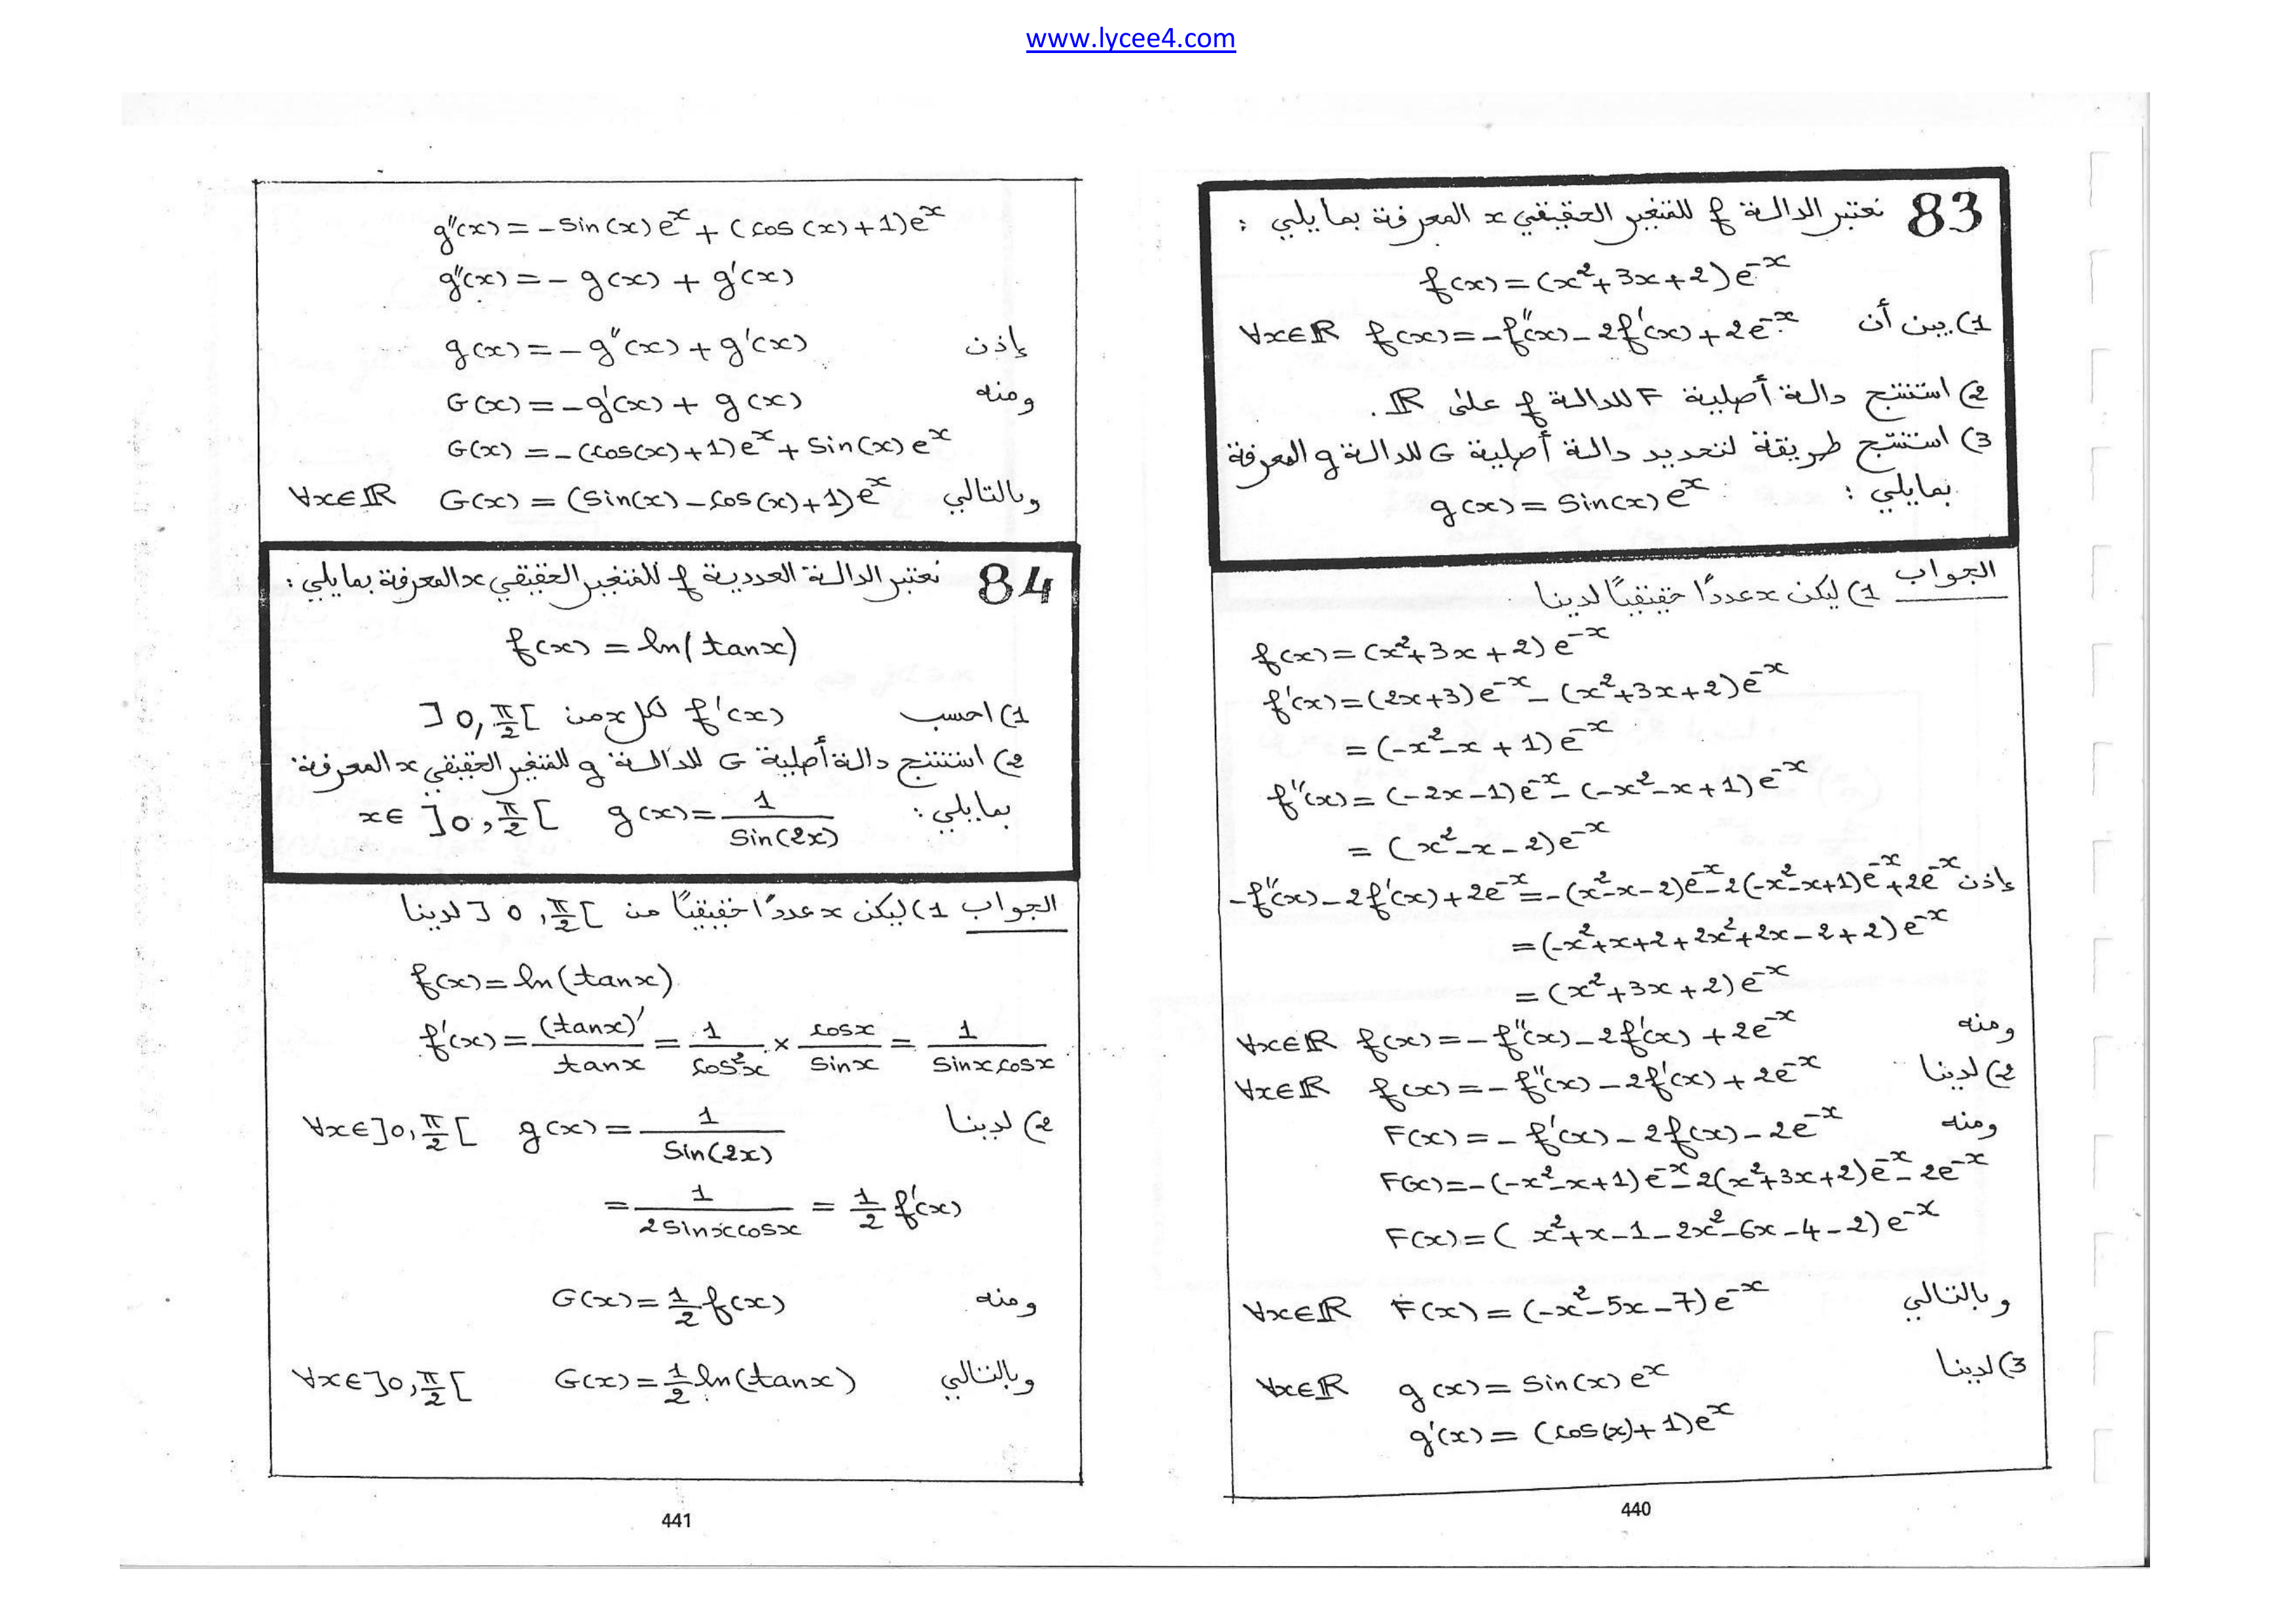 www.lycee4.com
83 نعتبر الدالة f للمتغير الحقيقي x المعرفة بما يلي :
f(x) = (x²+3x+2)e^{-x}
1) بين أن f(x) = -f''(x) - 2f'(x) + 2e^{-x} ∀x∈ℝ
2) استنتج دالة أصلية F للدالة f على ℝ.
3) استنتج طريقة لتحديد دالة أصلية G للدالة g المعرفة
بما يلي : g(x) = Sin(x)e^x
الجواب 1) ليكن x عددًا حقيقيًا لدينا
f(x) = (x²+3x+2)e^{-x}
f'(x) = (2x+3)e^{-x} - (x²+3x+2)e^{-x}
= (-x²-x+1)e^{-x}
f''(x) = (-2x-1)e^{-x} - (-x²-x+1)e^{-x}
= (x²-x-2)e^{-x}
إذن -f''(x)-2f'(x)+2e^{-x} = -(x²-x-2)e^{-x}-2(-x²-x+1)e^{-x}+2e^{-x}
= (-x²+x+2+2x²+2x-2+2)e^{-x}
= (x²+3x+2)e^{-x}
ومنه ∀x∈ℝ f(x) = -f''(x)-2f'(x)+2e^{-x}
2) لدينا ∀x∈ℝ f(x) = -f''(x)-2f'(x)+2e^{-x}
ومنه F(x) = -f'(x)-2f(x)-2e^{-x}
F(x) = -(-x²-x+1)e^{-x}-2(x²+3x+2)e^{-x}-2e^{-x}
F(x) = (x²+x-1-2x²-6x-4-2)e^{-x}
وبالتالي ∀x∈ℝ F(x) = (-x²-5x-7)e^{-x}
3) لدينا ∀x∈ℝ g(x) = Sin(x)e^x
g'(x) = (cos(x)+1)e^x
440
g''(x) = -sin(x)e^x + (cos(x)+1)e^x
g''(x) = -g(x) + g'(x)
إذن g(x) = -g''(x) + g'(x)
ومنه G(x) = -g'(x) + g(x)
G(x) = -(cos(x)+1)e^x + Sin(x)e^x
وبالتالي G(x) = (Sin(x) - cos(x)+1)e^x ∀x∈ℝ
84 نعتبر الدالة العددية f للمتغير الحقيقي x المعرفة بما يلي :
f(x) = ln(tanx)
1) احسب f'(x) لكل x من ]0, π/2[
2) استنتج دالة أصلية G للدالة g للمتغير الحقيقي x المعرفة
بما يلي : g(x) = 1/Sin(2x) x∈]0, π/2[
الجواب 1) ليكن x عددًا حقيقيًا من ]0, π/2[ لدينا
f(x) = ln(tanx)
f'(x) = (tanx)'/tanx = 1/cos²x × cosx/Sinx = 1/Sinxcosx
2) لدينا ∀x∈]0, π/2[ g(x) = 1/Sin(2x)
= 1/2Sinxcosx = 1/2 f'(x)
ومنه G(x) = 1/2 f(x)
وبالتالي ∀x∈]0, π/2[ G(x) = 1/2 ln(tanx)
441